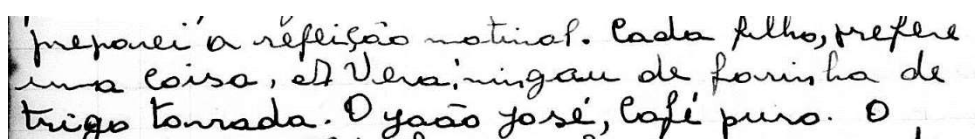 preparei a refeição matinal. Cada filho, prefere
uma coisa, A Vera, mingau de farinha de
trigo torrada. O João José, Café puro. O